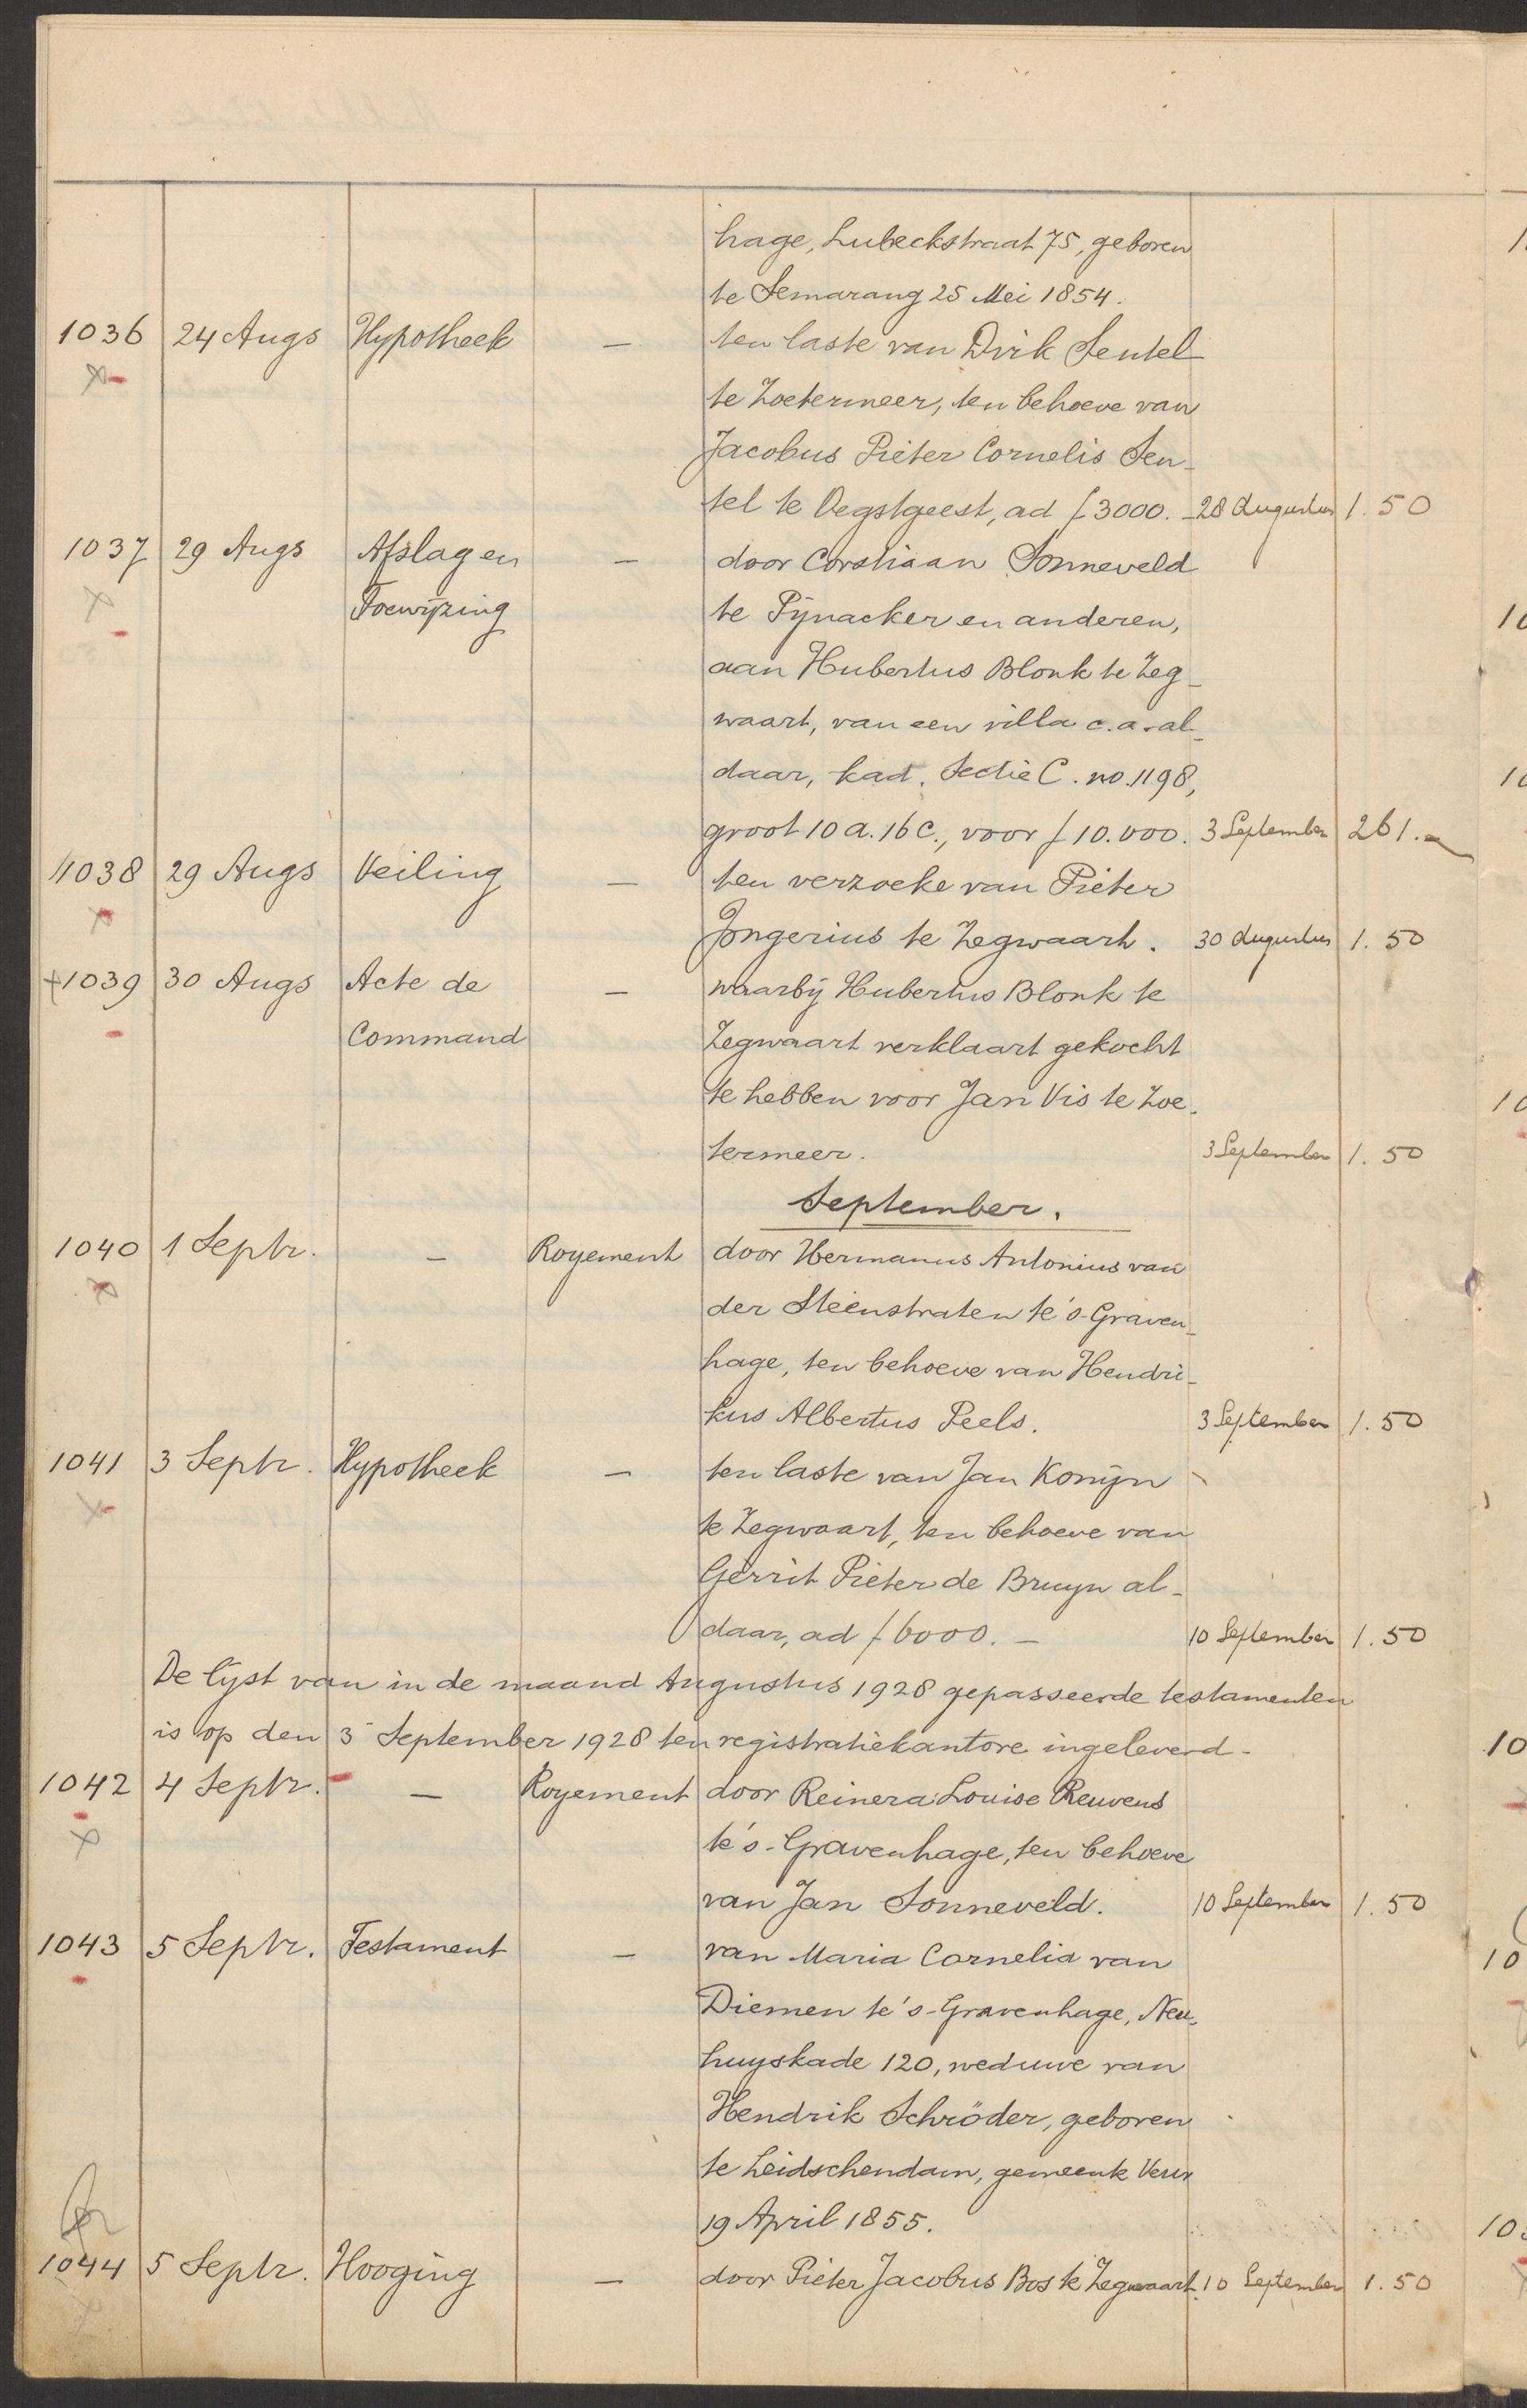 hage, Lubeckstraat 75, geboren
te Semarang 25 Mei 1854.
1036 24 Augs Hypotheek — ten laste van Dirk Sentel
te Zoetermeer, ten behoeve van
Jacobus Pieter Cornelis Sen-
tel te Oegstgeest, ad f 3000.- 28 Augustus 1.50
1037 29 Augs Afslag en — door Corstiaan Sonneveld
Toewijzing te Pijnacker en anderen,
aan Hubertus Blonk te Zeg-
waart, van een villa c.a. al-
daar, kad. Sectie C. no. 1198,
groot 10 a. 16 c., voor f 10.000. 3 September 261.-
1038 29 Augs Veiling — ten verzoeke van Pieter
Jongerius te Zegwaart. 30 Augustus 1.50
1039 30 Augs Acte de — waarbij Hubertus Blonk te
Command Zegwaart verklaart gekocht
te hebben voor Jan Vis te Zoe-
termeer. 3 September 1.50
September.
1040 1 Septr. — Royement door Hermanus Antonius van
der Steenstraten te 's-Graven-
hage, ten behoeve van Hendri-
kus Albertus Peels. 3 September 1.50
1041 3 Septr. Hypotheek — ten laste van Jan Konijn
te Zegwaart, ten behoeve van
Gerrit Pieter de Bruyn al-
daar, ad f 6000.- 10 September 1.50
De lijst van in de maand Augustus 1928 gepasseerde testamenten
is op den 3 September 1928 ten registratiekantore ingeleverd.
1042 4 Septr. — Royement door Reinera Louise Reuvens
te 's-Gravenhage, ten behoeve
van Jan Sonneveld. 10 September 1.50
1043 5 Septr. Testament — van Maria Cornelia van
Diemen te 's-Gravenhage, Neu-
huyskade 120, weduwe van
Hendrik Schröder, geboren
te Leidschendam, gemeente Veur
19 April 1855.
1044 5 Septr. Hooging — door Pieter Jacobus Bos te Zegwaart. 10 September 1.50